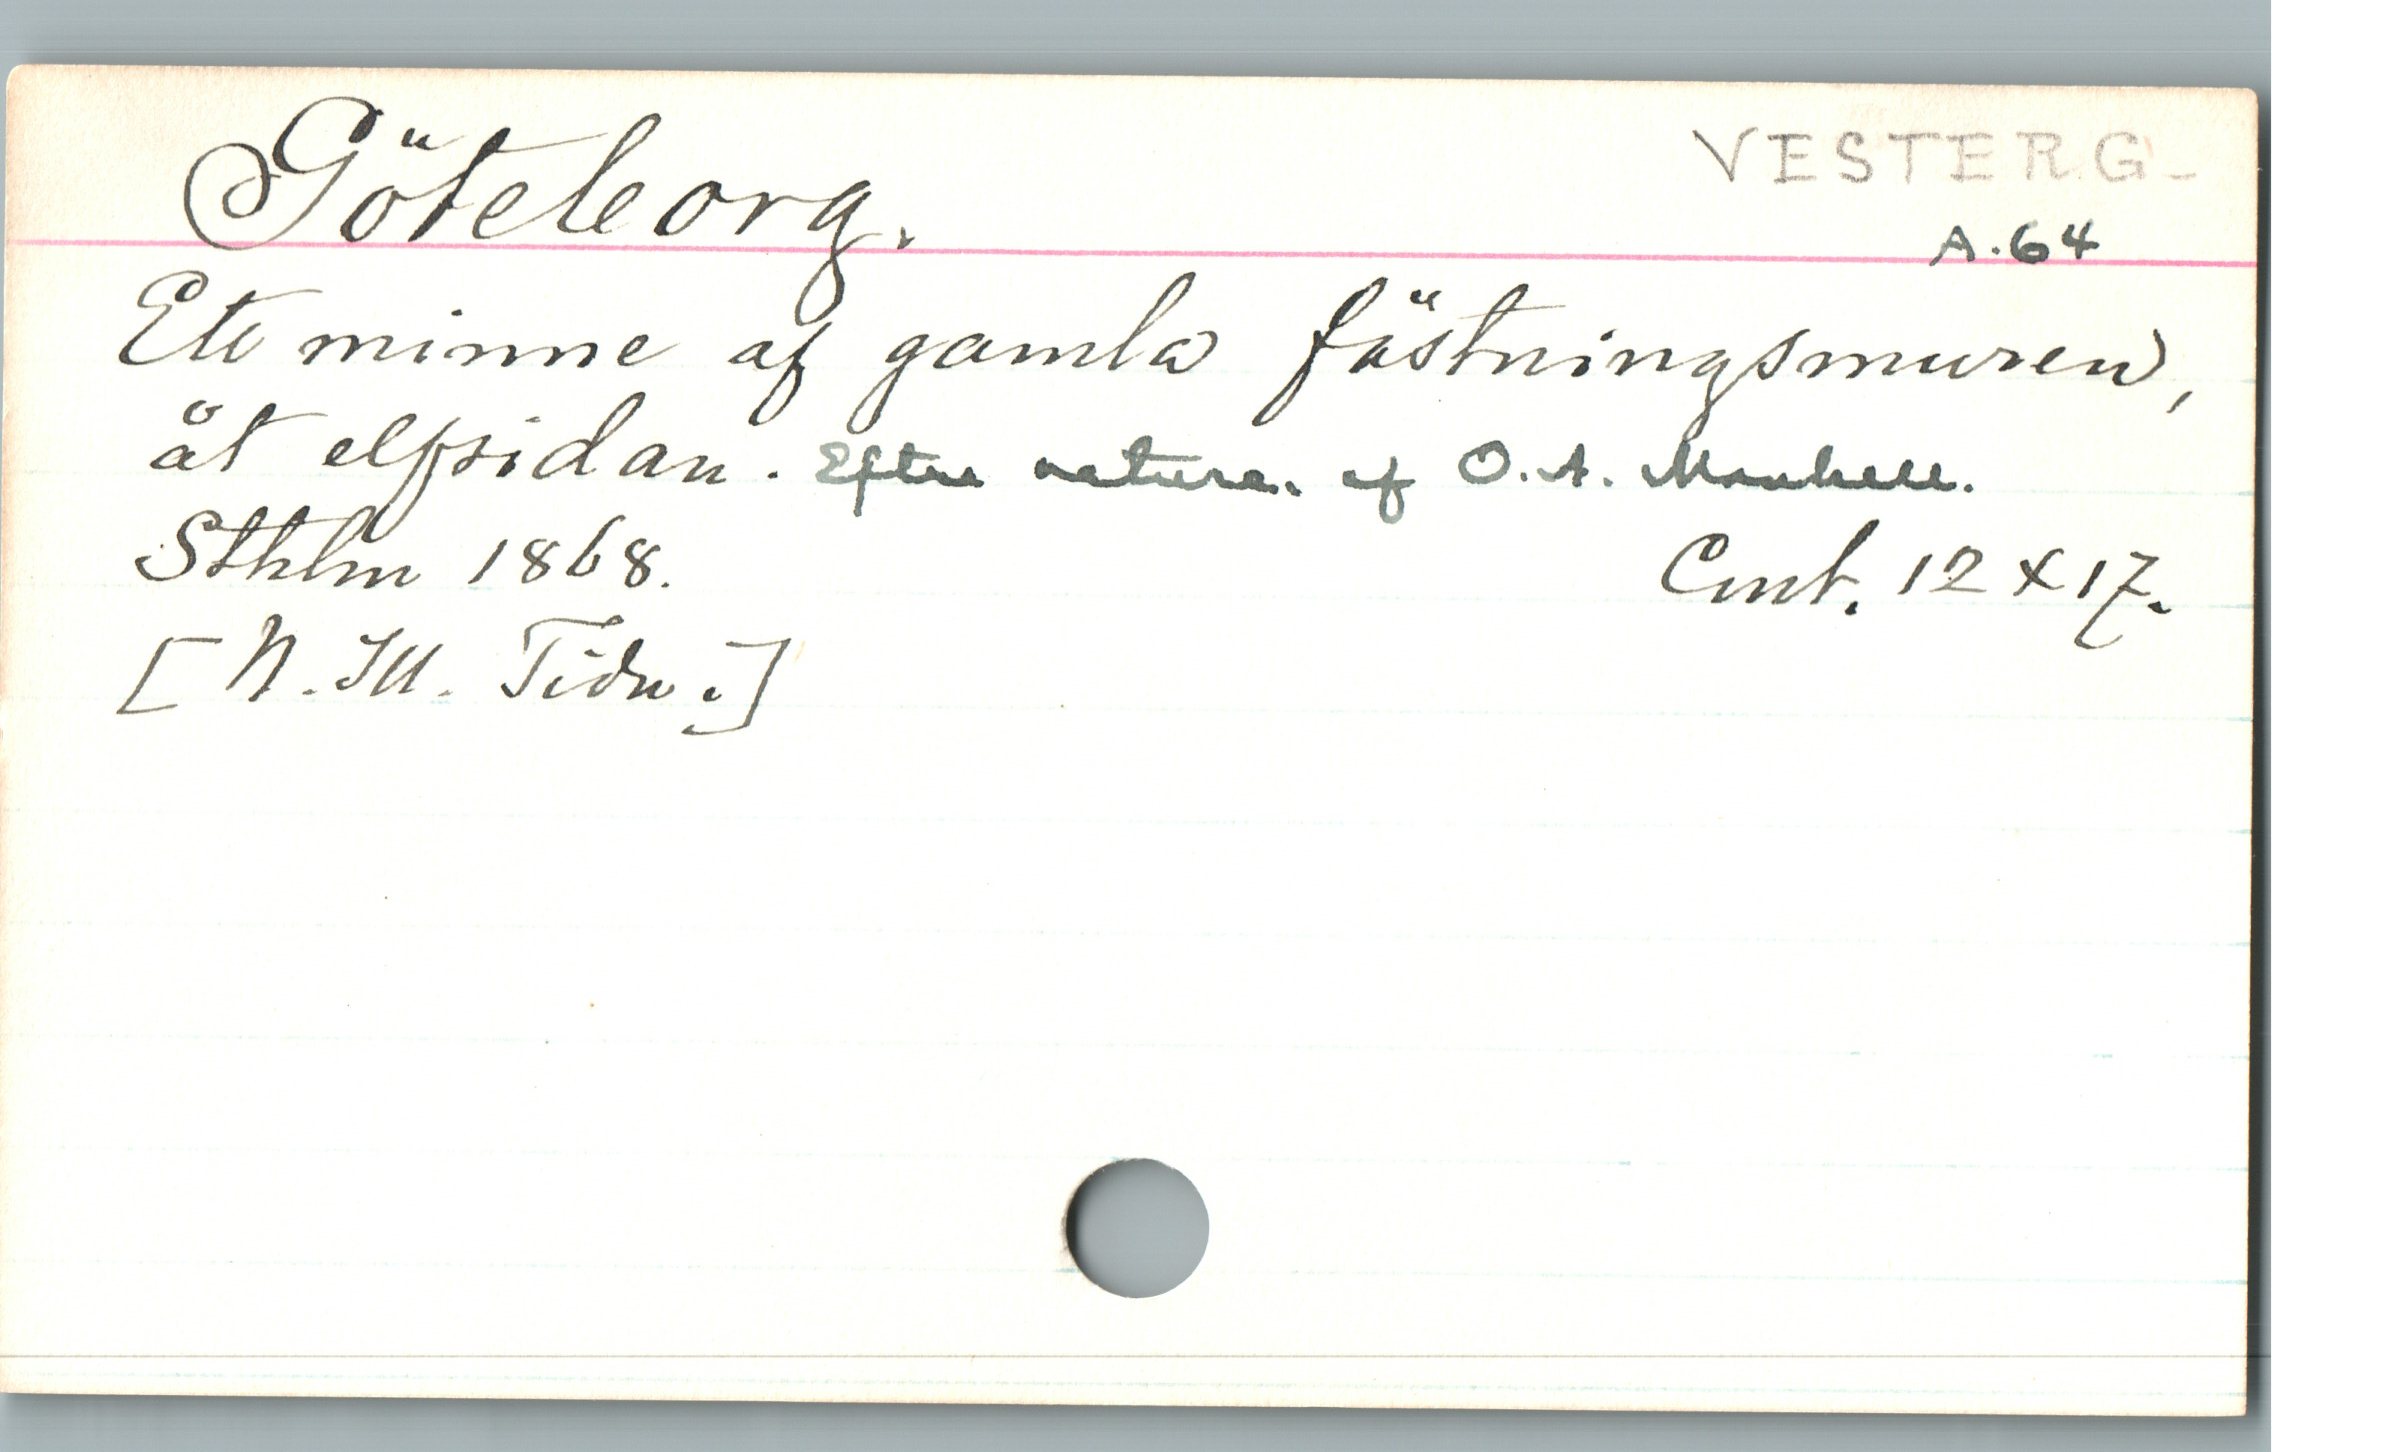 Göteborg.
VESTERG-
A.64
Ett minne af gamla fästningsmuren,
åt elfsidan. Efter naturen af O. A. Mankell.
Sthlm 1868.
Cmt. 12 x 17.
[N. Ill. Tidn.]